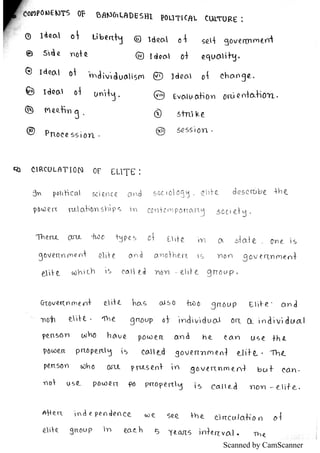 COMPONENTS OF BANGLADESHI POLITICAL CULTURE :
① Ideal of Liberty ⓘⓘ Ideal of self government
Side note ⓘⓥ Ideal of equality.
Ideal of individualism ⓥⓘ Ideal of change.
Ideal of unity. Evaluation orientation.
Meeting. ⓧ Strike
Procession. session.
CIRCULATION OF ELITE :
In political science and sociology, elite describe the
power relationships in contemporary society.
There are two types of Elite in a state. one is
government elite and another is non government
elite which is called non-elite group.
Government elite has also two group Elite and
non elite. The group of individual or a individual
person who have power and he can use the
power properly is called government elite. The
person who are present in government but can-
not use power fo properly is called non-elite.
After independence we see the circulation of
elite group in each 5 years interval. The
Scanned by CamScanner